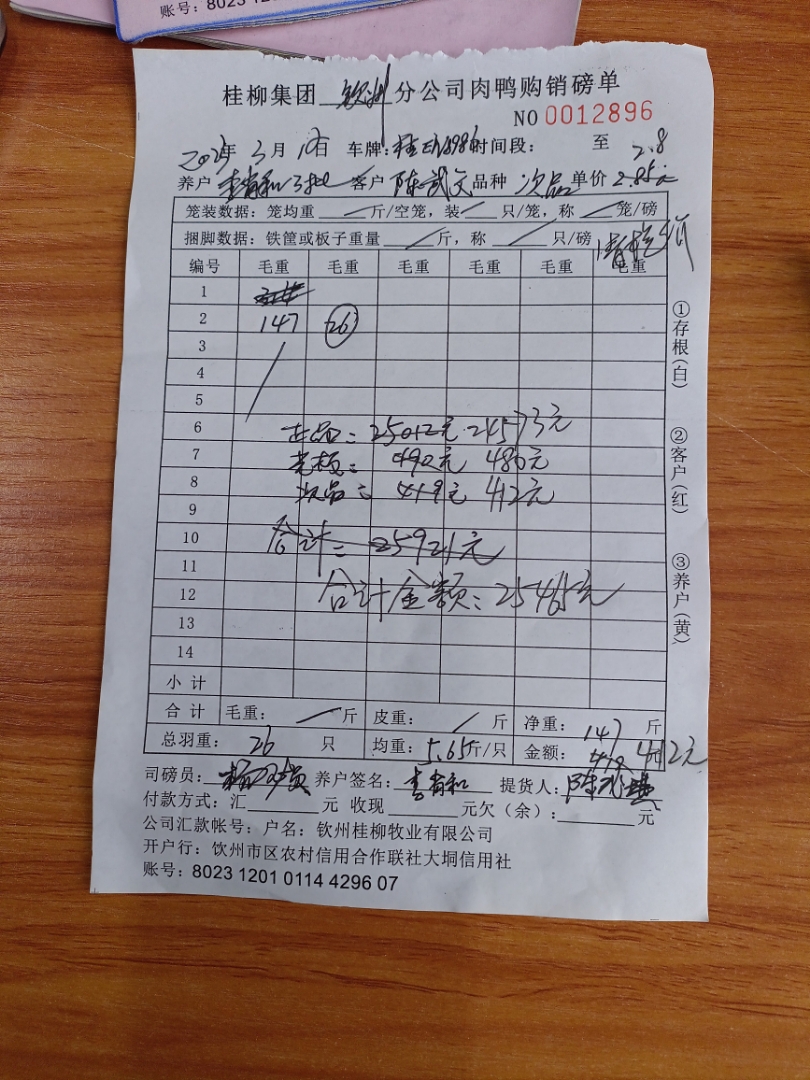 账号: 8023 12
桂柳集团 钦州 分公司肉鸭购销磅单
NO 0012896
年 3 月 日 车牌: 时间段: 至 2.8
养户 李有和 客户 陈武文 品种 次品 单价 2.85元
笼装数据: 笼均重 斤/空笼, 装 只/笼, 称 笼/磅
捆脚数据: 铁筐或板子重量 斤, 称 只/磅
编号 毛重 毛重 毛重 毛重 毛重 毛重
1
2 147 26
3
4
5
6 正品: 25012元 24573元
7 老板: 492元 480元
8 次品: 419元 412元
9
10 合计= 25921元
11
12 合计金额: 25465元
13
14
小计
合计 毛重: 斤 皮重: 斤 净重: 147 斤
总羽重: 26 只 均重: 5.65斤/只 金额: 419 412元
司磅员: 养户签名: 李有和 提货人:
付款方式: 汇 元 收现 元欠(余): 元
公司汇款帐号: 户名: 钦州桂柳牧业有限公司
开户行: 饮州市区农村信用合作联社大垌信用社
账号: 8023 1201 0114 4296 07
①存根(白)
②客户(红)
③养户(黄)